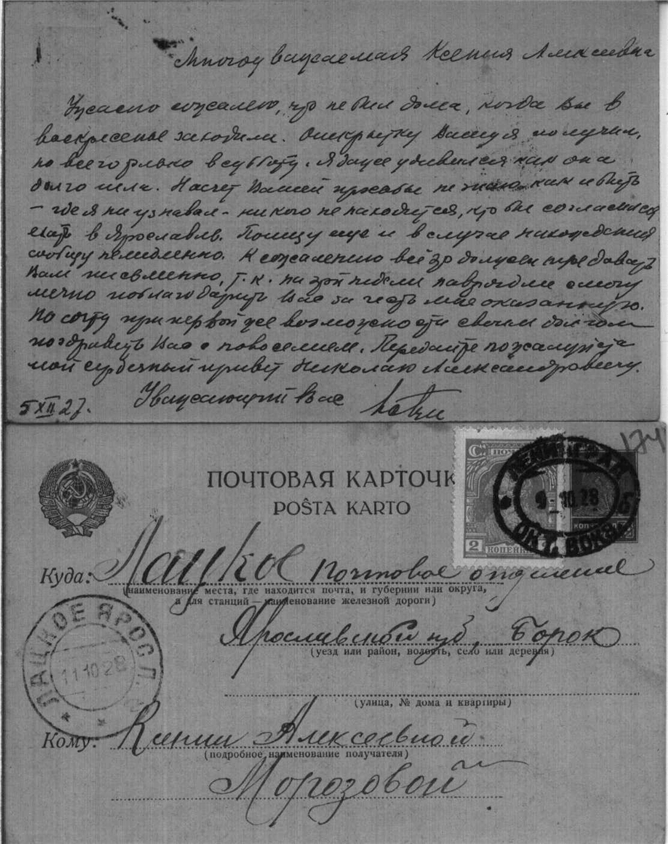 Многоуважаемая Ксения Алексеевна
Ужасно сожалею, что не был дома, когда Вы в
воскресенье заходили. Открытку Вашу я получил,
но всего только в субботу. Я даже удивился как она
долго шла. Насчет Вашей просьбы не знаю как и быть
– где я ни узнавал – никого не находится, кто бы согласился
ехать в Ярославль. Поищу еще и в случае нахождения
сообщу немедленно. К сожалению всё это должен передавать
Вам письменно, т.к. на этой недели навряд ли смогу
лично поблагодарить Вас за честь мне оказанную.
Но сочту при первой же возможности своим долгом
поздравить Вас с новоселием. Передайте пожалуйста
мой сердечный привет Николаю Александровичу.
5 XII 27. Уважающий Вас
174
ПОЧТОВАЯ КАРТОЧК
POŜTA KARTO
2 КОПЕЙКИ
ЛЕНИНГРАД
9-10 28
ОКТ. ВОКЗ.
Б
Куда: Лацкое почтовое отделение
(наименование места, где находится почта, и губернии или округа,
а для станций — наименование железной дороги)
Ярославской губ, Борок
(уезд или район, волость, село или деревня)
(улица, № дома и квартиры)
ЛАЦКОЕ ЯРОСЛ.
11 10 28
Кому: Ксении Алексеевной
(подробное наименование получателя)
Морозовой